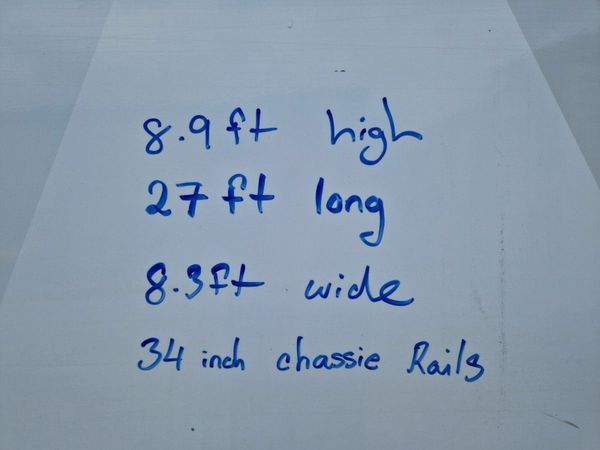 8.9ft high
27 ft long
8.3ft wide
34 inch chassie Rails